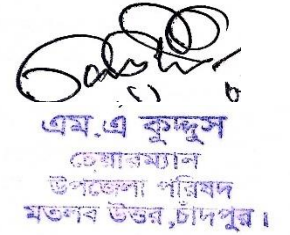 এম.এ কুদ্দুস
চেয়ারম্যান
উপজেলা পরিষদ
মতলব উত্তর,চাঁদপুর।